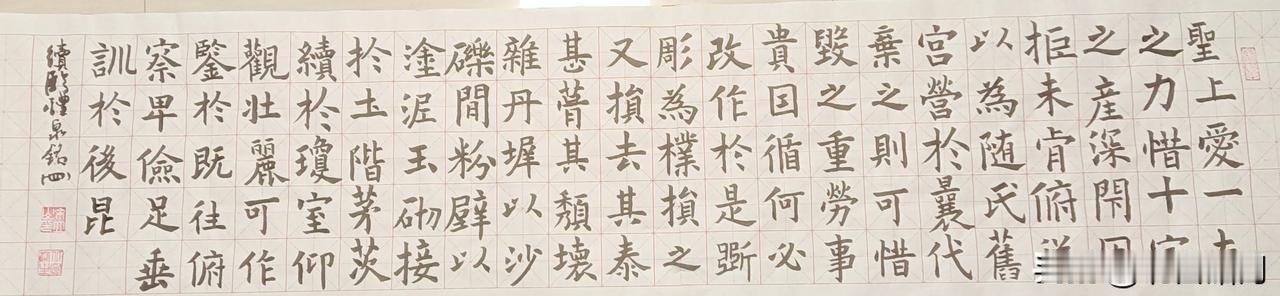 聖上愛一
之力惜十
之產深閇
拒未肯俯
以為随氏舊
宮營於曩代
棄之則可惜
毀之重勞事
貴因循何必
改作於是斲
彫為樸損之
又損去其泰
甚葺其頹壞
雜丹墀以沙
礫間粉壁以
塗泥玉砌接
於土階茅茨
續於瓊室仰
觀壯麗可作
鑒於既往俯
察卑儉足垂
訓於後昆
續歐醴泉銘(四)